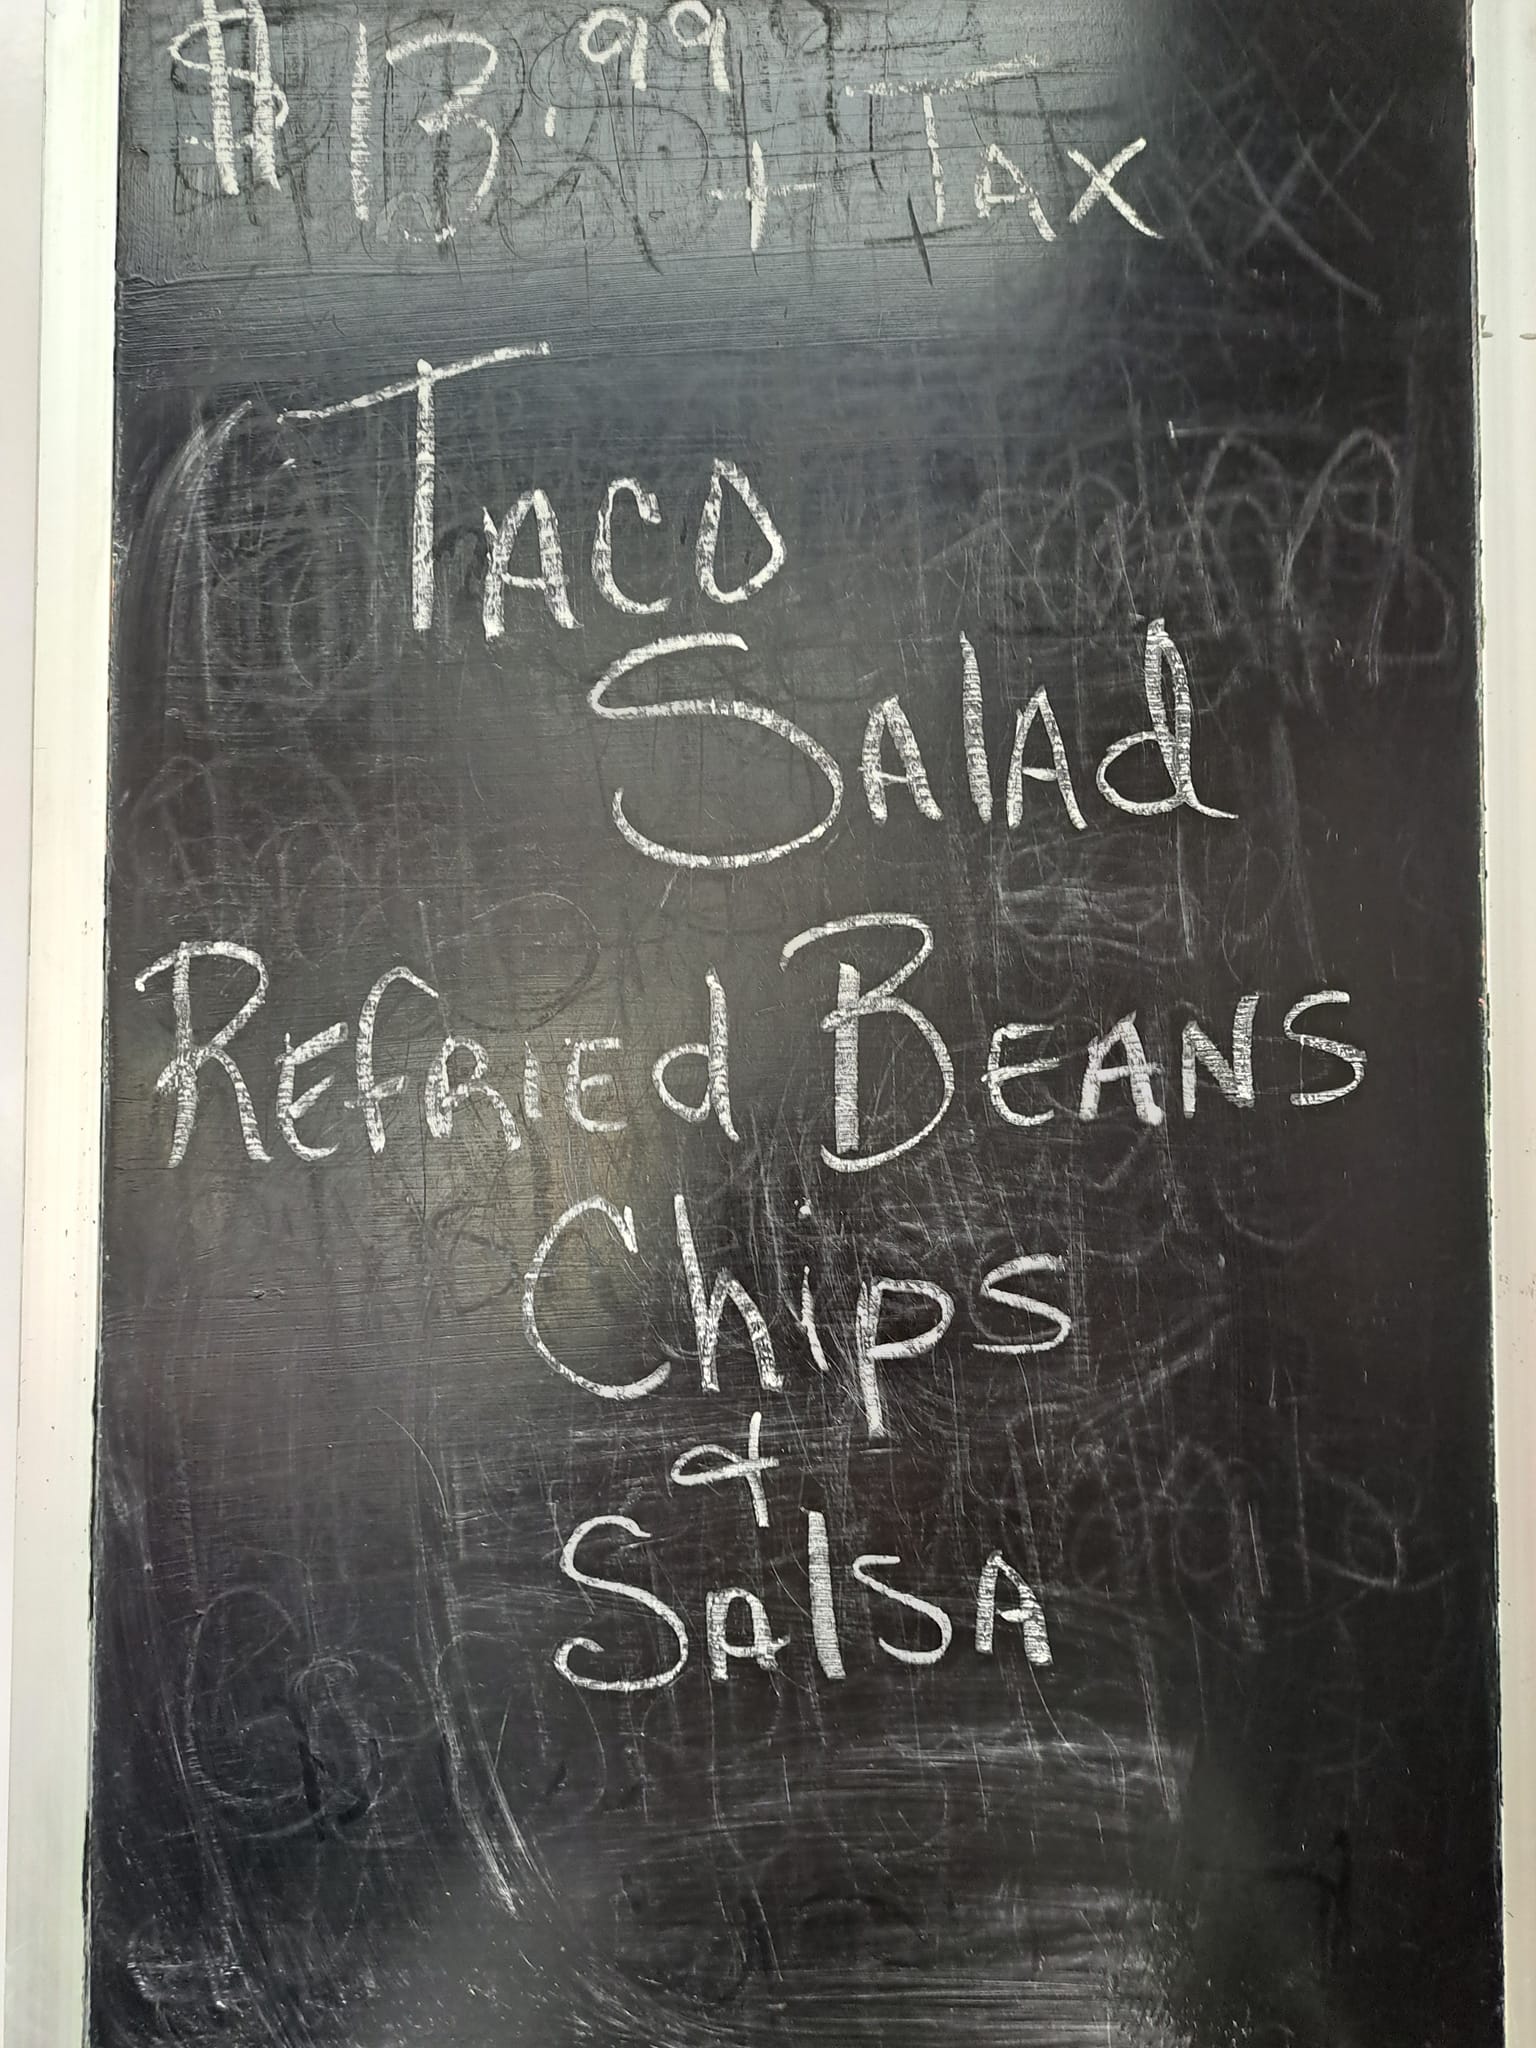 $13.99 + TAX
TACO
SALAd
REfRIEd BEANS
Chips
&
SalSA